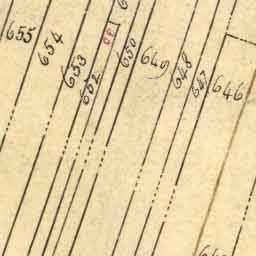 655
654
653
652
650
649
648
647
646